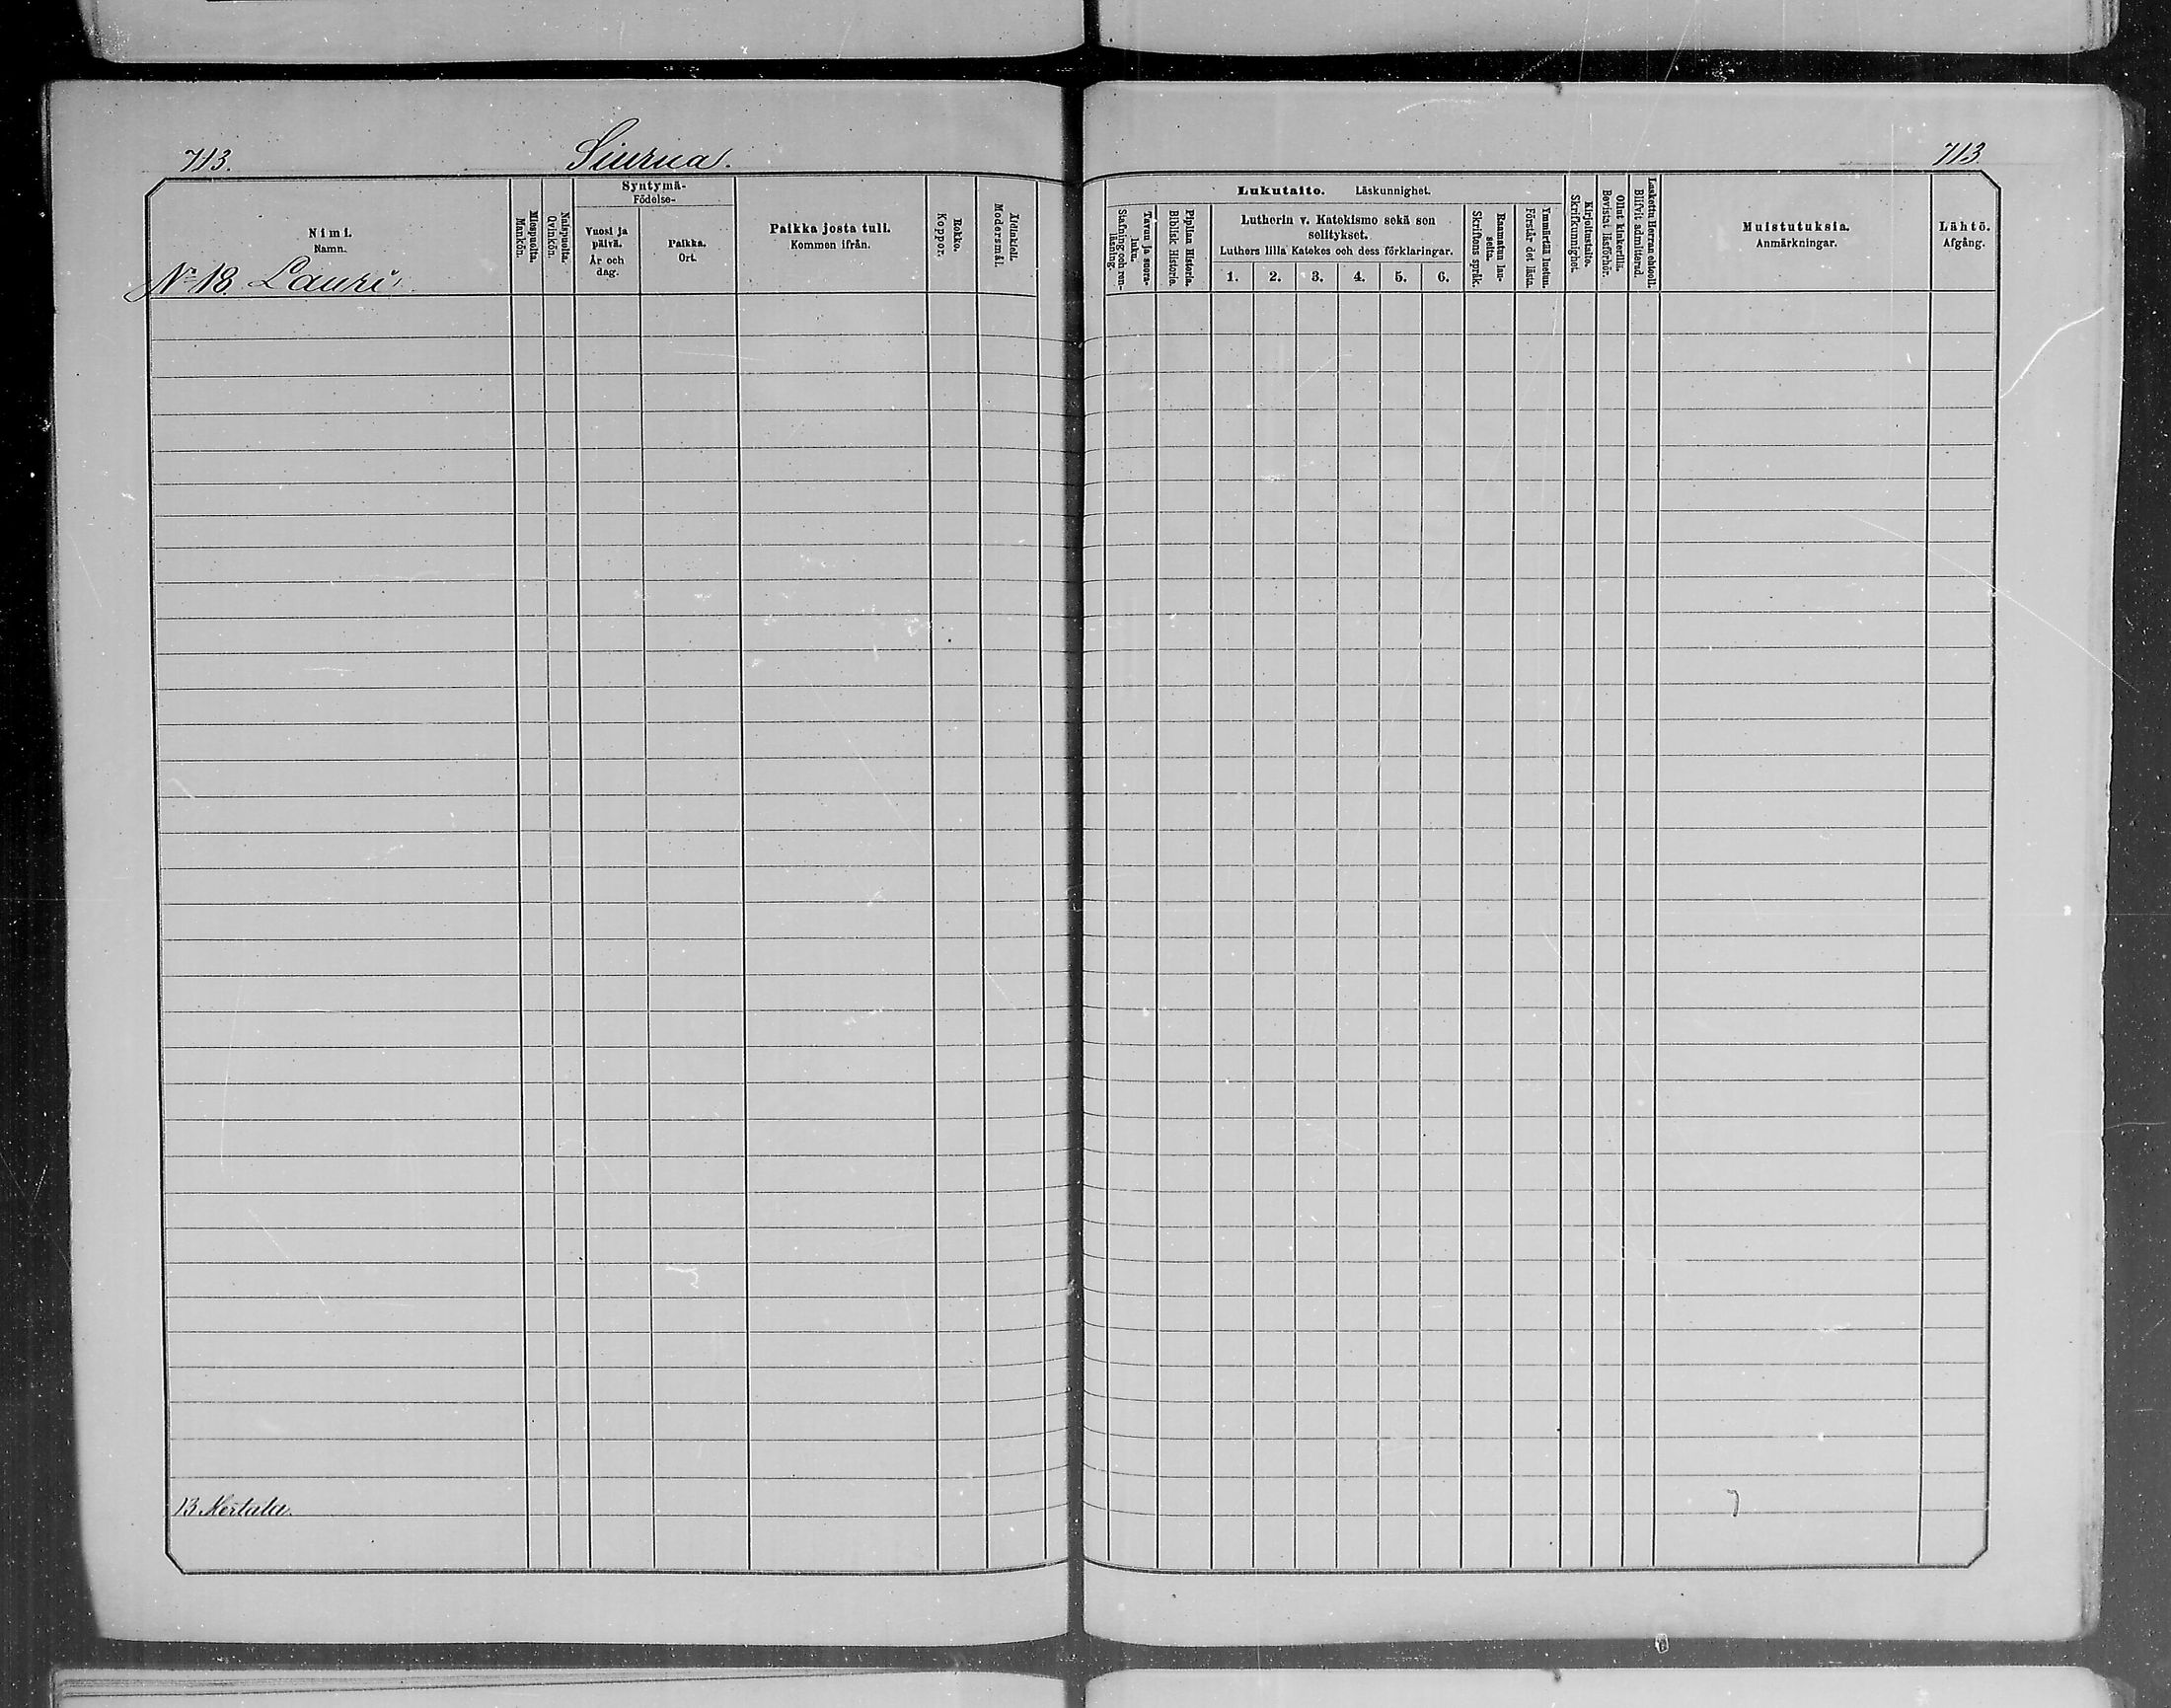 713.
Siurua.
Nimi.
Namn.
Miespuolta.
Mankön.
Naispuolta.
Qvinkön.
Syntymä-
Födelse-
Vuosi ja
päivä.
År och
dag.
Paikka.
Ort.
Paikka josta tuli.
Kommen ifrån.
Rokko.
Koppor.
Äidinkieli.
Modersmål.
No 18. Lauri.
13 Mertala.
713.
Lukutaito. Läskunnighet.
Tavuu ja suora-
luku.
Stafning och ren-
läsning.
Piplian Historia.
Biblisk Historie.
Lutherin v. Katekismo sekä sen
selitykset.
Luthers lilla Katekes och dess förklaringar.
1. 2. 3. 4. 5. 6.
Raamatun lau-
seita.
Skriftens språk.
Ymmärtää luetun.
Förstår det lästa.
Kirjoitustaito.
Skrifkunnighet.
Ollut kinkerillä.
Bevistat läsförhör.
Laskettu Herran ehtooll.
Blifvit admitterad.
Muistutuksia.
Anmärkningar.
Lähtö.
Afgång.
7